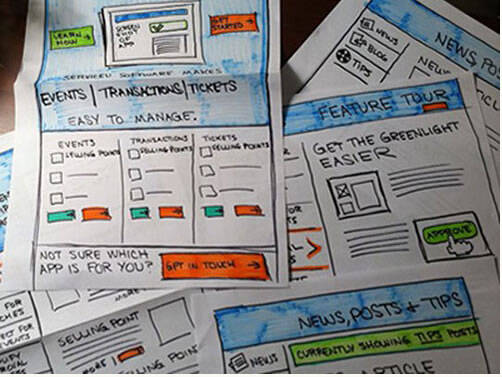 LEARN HOW →
SCREEN SHOT OF APP
GET STARTED →
SERVICEU SOFTWARE MAKES
EVENTS | TRANSACTIONS | TICKETS
EASY TO MANAGE.
EVENTS
SELLING POINTS
TRANSACTIONS
SELLING POINTS
TICKETS
SELLING POINTS
NOT SURE WHICH
APP IS FOR YOU?
GET IN TOUCH →
NEWS, POS
NEWS
BLOG
TIPS
NEWS
FEATURE TOUR
GET THE GREENLIGHT
EASIER
APPROVE
FOR
SELLING POINT
MORE
NEWS, POSTS + TIPS
NEWS
CURRENTLY SHOWING TIPS POSTS
ARTICLE
FOR
EVENTS